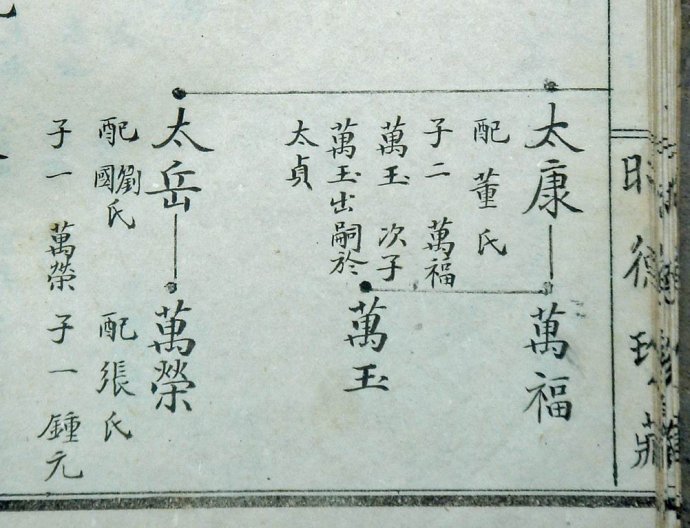 明德珍藏
太康
配董氏
子二 萬福
萬玉 次子
萬玉出嗣於
太貞
萬福
萬玉
太岳
配劉氏
國
子一 萬榮
萬榮
配張氏
子一 鍾元